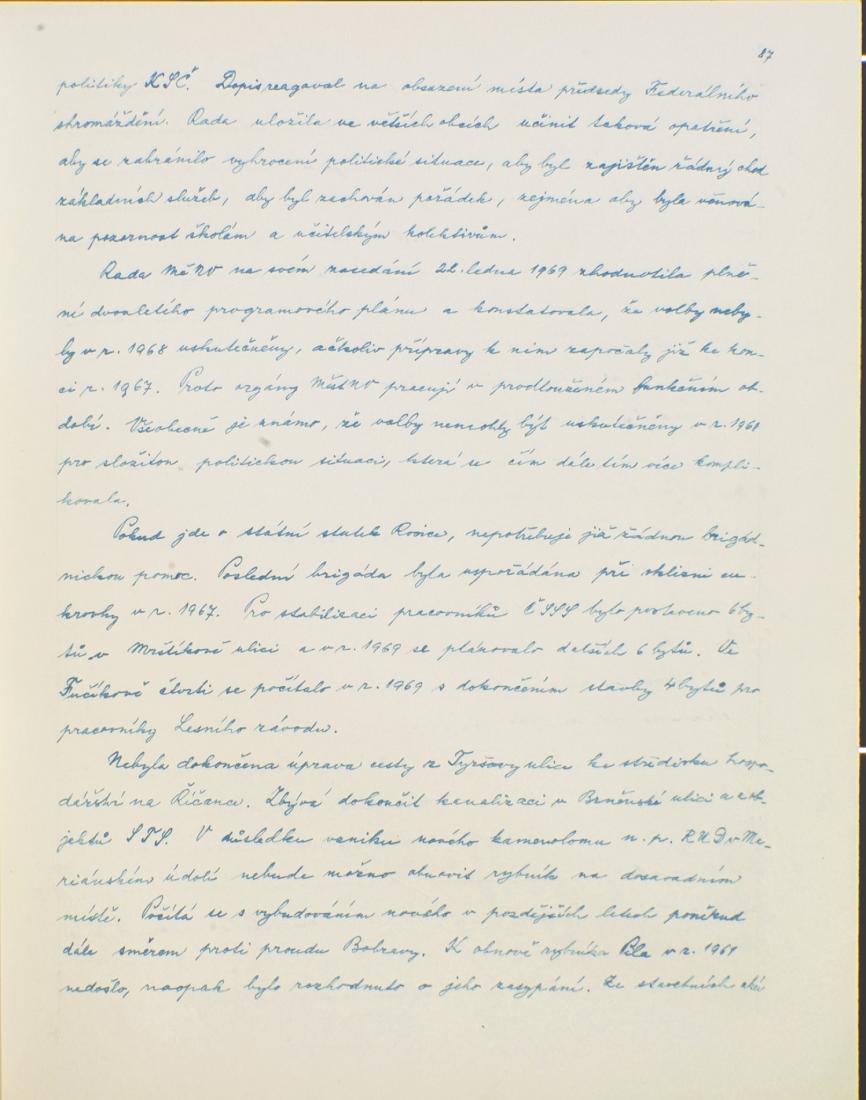 87
politiky KSČ. Dopis reagoval na obsazení místa předsedy Federálního
shromáždění. Rada uložila ve větších obcích učinit taková opatření,
aby se zabránilo vyhrocení politické situace, aby byl zajištěn řádný chod
základních služeb, aby byl zachován pořádek, zejména aby byla věnová-
na pozornost školám a učitelským kolektivům.
Rada MěNV na svém zasedání 22. ledna 1969 zhodnotila plně-
ní dvouletého programového plánu a konstatovala, že volby neby-
ly v r. 1968 uskutečněny, ačkoliv přípravy k nim započaly již ke kon-
ci r. 1967. Proto orgány MěstNV pracují v prodlouženém funkčním ob-
dobí. Všeobecně je známo, že volby nemohly být uskutečněny v r. 1968
pro složitou politickou situaci, která se čím dále tím více kompli-
kovala.
Pokud jde o státní statek Rosice, nepotřebuje již žádnou brigád-
nickou pomoc. Poslední brigáda byla uspořádána při sklizni cu-
krovky v r. 1967. Pro stabilizaci pracovníků ČSSS bylo postaveno 6 by-
tů v Mrštíkově ulici a v r. 1969 se plánovalo dalších 6 bytů. Ve
Fučíkově čtvrti se počítalo v r. 1969 s dokončením stavby 4 bytů pro
pracovníky Lesního závodu.
Nebyla dokončena úprava cesty z Tyršovy ulice ke středisku hospo-
dářství na Říčance. Zbývá dokončit kanalizaci v Brněnské ulici a z ob-
jektů STS. V důsledku vzniku nového kamenolomu n. p. RUD v Ma-
riánském údolí nebude možno obnovit rybník na dosavadním
místě. Počítá se s vybudováním nového v pozdějších letech poněkud
dále směrem proti proudu Bobravy. K obnově rybníka Pila v r. 1969
nedošlo, naopak bylo rozhodnuto o jeho zasypání. Ze stavebních akcí